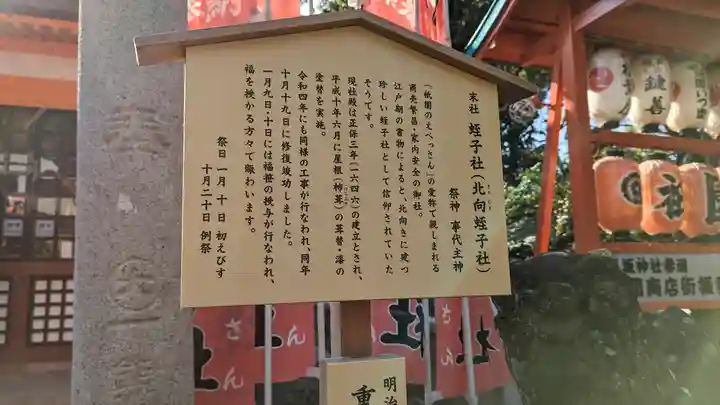 末社 蛭子社(北向蛭子社)
祭神 事代主神
(祇園のえべっさん)の愛称で親しまれる
商売繁昌・家内安全の御社。
江戸期の書物によると、北向きに建つ
珍しい蛭子社として信仰されていた
そうです。
現社殿は正保三年(一六四六)の建立とされ、
平成十年六月に屋根(杮葺)の葺替・漆の
塗替を実施。
令和四年にも同様の工事が行なわれ、同年
十月十九日に修復竣功しました。
一月九日・十日には福笹の授与が行なわれ、
福を授かる方々で賑わいます。
祭日 一月 十日 初えびす
十月二十日 例祭
明治
重
社
さん
さん
社
鍵善